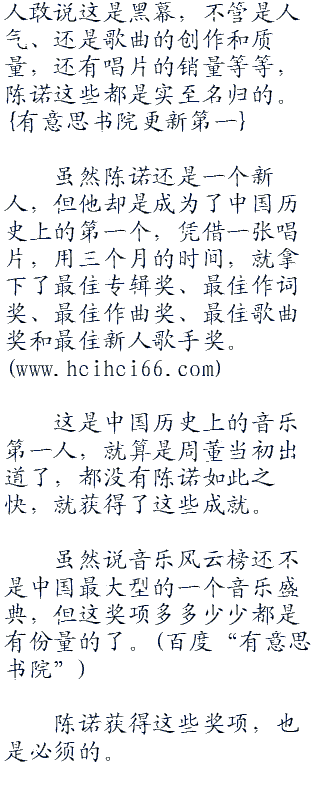 人敢说这是黑幕，不管是人
气、还是歌曲的创作和质
量，还有唱片的销量等等，
陈诺这些都是实至名归的。
{有意思书院更新第一}
虽然陈诺还是一个新
人，但他却是成为了中国历
史上的第一个，凭借一张唱
片，用三个月的时间，就拿
下了最佳专辑奖、最佳作词
奖、最佳作曲奖、最佳歌曲
奖和最佳新人歌手奖。
(www.hcihci66.com)
这是中国历史上的音乐
第一人，就算是周董当初出
道了，都没有陈诺如此之
快，就获得了这些成就。
虽然说音乐风云榜还不
是中国最大型的一个音乐盛
典，但这奖项多多少少都是
有份量的了。(百度“有意思
书院”)
陈诺获得这些奖项，也
是必须的。